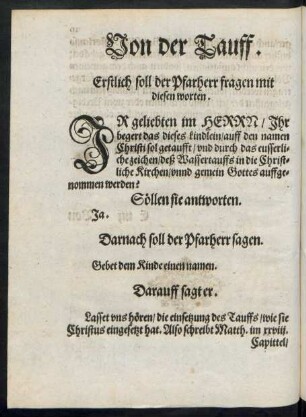 Von der Tauff.
Erstlich soll der Pfarherr fragen mit
diesen worten.
IR geliebten im HERRN / Ihr
begert das dieses kindlein / auff den namen
Christi sol getaufft / vnd durch das eusserli-
che zeichen / deß Wassertauffs in die Christ-
liche Kirchen / vnnd gemein Gottes auffge-
nommen werden?
Söllen sie antworten.
Ja.
Darnach soll der Pfarherr sagen.
Gebet dem Kinde einen namen.
Darauff sagt er.
Lasset vns hören / die einsetzung des Tauffs / wie sie
Christus eingesetzt hat. Also schreibt Matth. im xxviii.
Capittel /